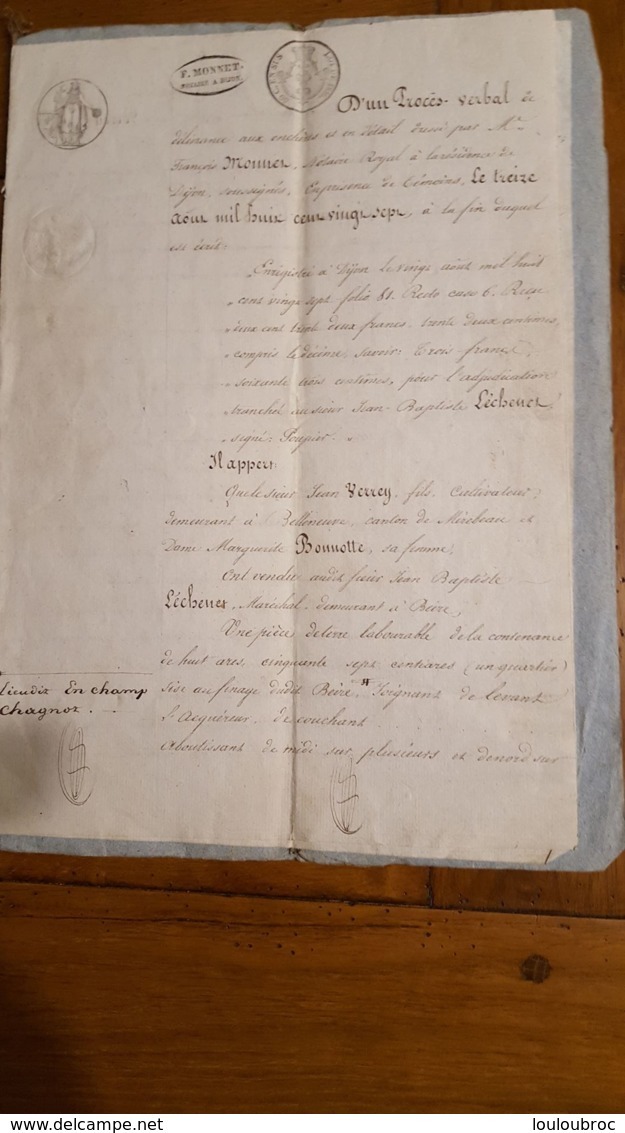 F. MONNET
NOTAIRE A DIJON
D'un Procès-verbal de
délivrance aux enchères et en détail dressé par Me
François Monnet, Notaire Royal à la résidence de
Dijon, soussignés, En présence de témoins, Le treize
Août mil huit cent vingt sept, à la fin duquel
est écrit:
"Enregistré à Dijon le vingt août mil huit
"cent vingt sept folio 81. Recto case 6. Reçu
"deux cent trente deux francs trente deux centimes,
"compris le décime, savoir: trois francs
"soixante trois centimes, pour l'adjudication
"tranchée au sieur Jean-Baptiste Léchenet,
"signé:
Il appert:
Que le sieur Jean Verrey, fils, Cultivateur,
demeurant à Belleneuve, canton de Mirebeau et
Dame Marguerite Bonnotte, sa femme,
Ont vendu audit sieur Jean Baptiste
Léchenet, Maréchal, demeurant à Beire,
Une pièce de terre labourable de la contenance
de huit ares, cinquante sept centiares (un quartier)
sise au finage dudit Beire, # Joignant de levant
l'Acquéreur, de couchant
Aboutissant de midi sur plusieurs et de nord sur
lieudit En champ
Chagnot.
louloubroc